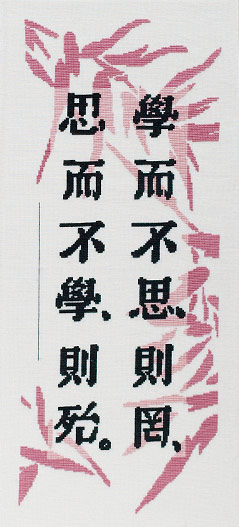 學而不思、則罔、
思而不學、則殆。